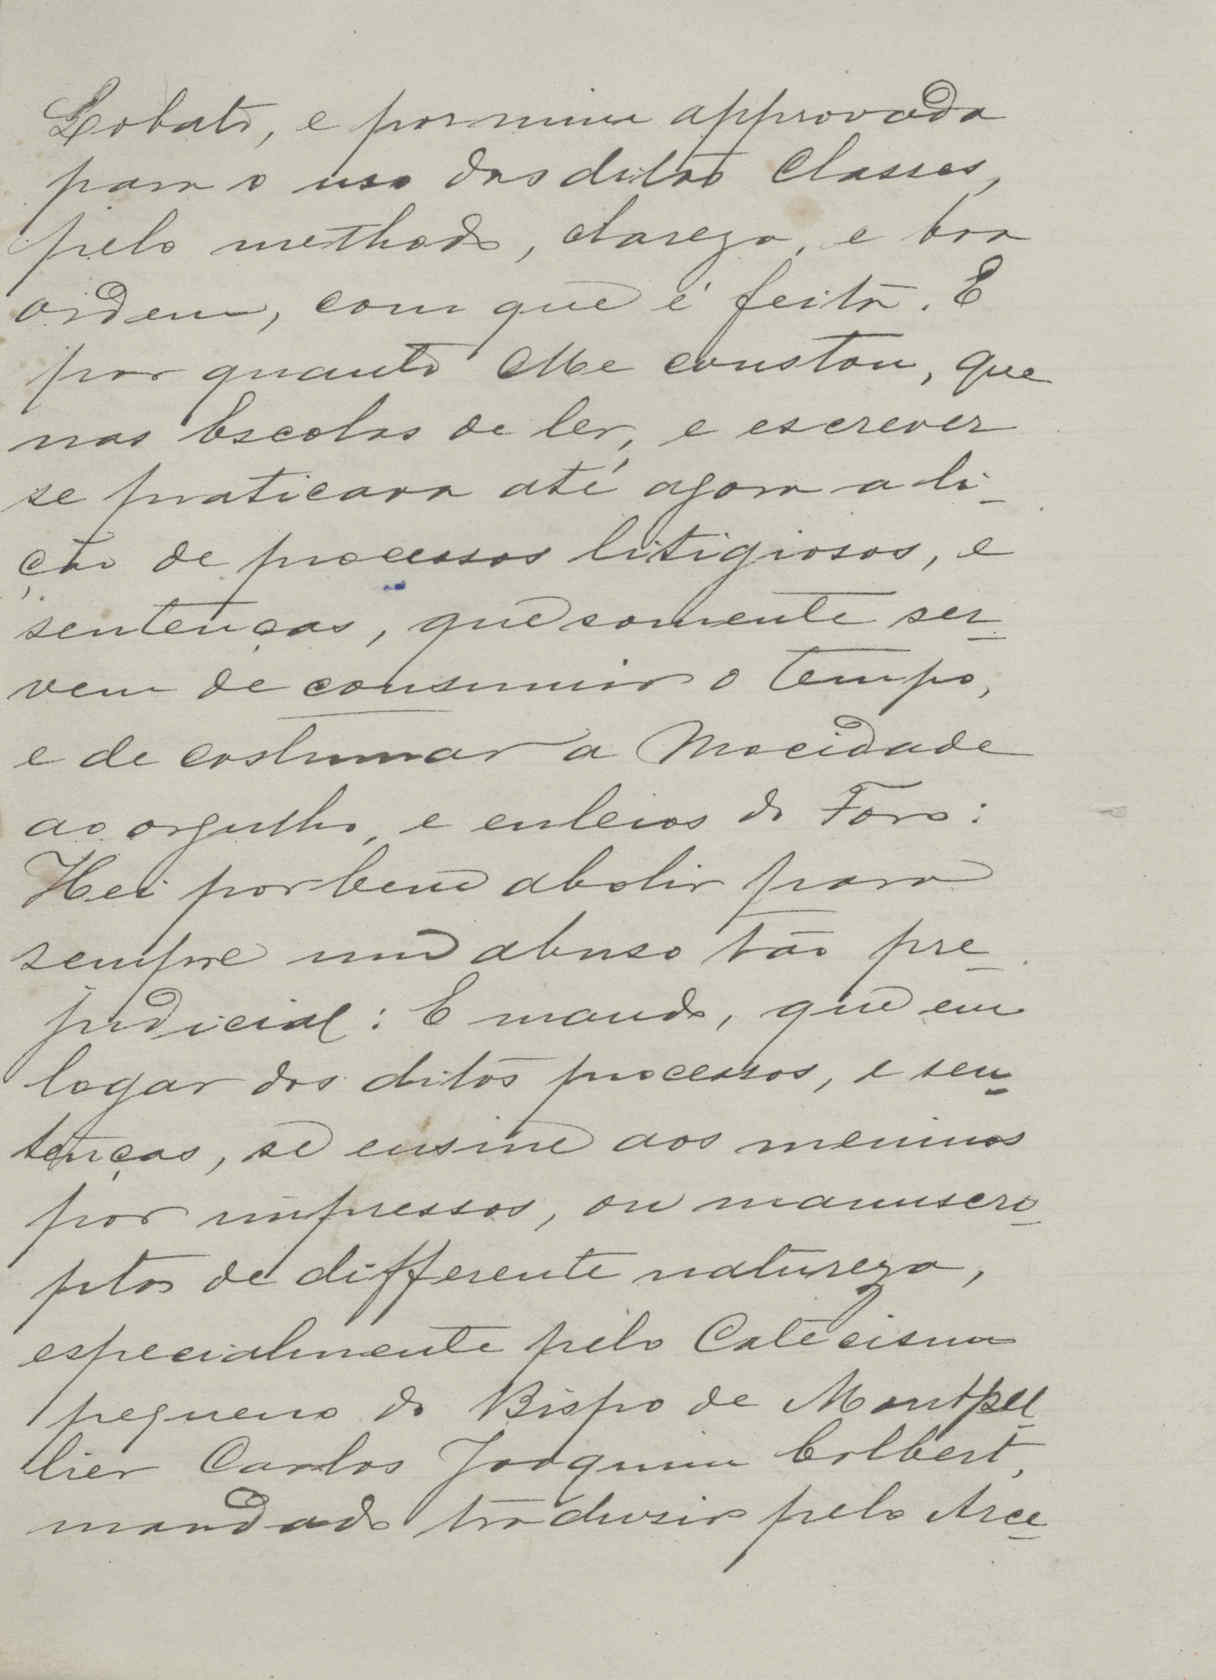 Lobato, e por mim approvada
para o uso das ditas Classes,
pelo methodo, clareza, e boa
ordem, com que é feita. E
por quanto Me constou, que
nas Escolas de ler, e escrever
se praticava até agora a li-
ção de processos litigiosos, e
sentenças, que somente ser-
vem de consumir o tempo,
e de costumar a Mocidade
ao orgulho, e enleios do Foro:
Hei por bem abolir para
sempre um abuso tão pre-
judicial: E mando, que em
logar dos ditos processos, e sen-
tenças, se ensine aos meninos
por impressos, ou manuscri-
ptos de differente natureza,
especialmente pelo Catecismo
pequeno do Bispo de Montpel-
lier Carlos Joaquim Colbert,
mandado traduzir pelo Arce-